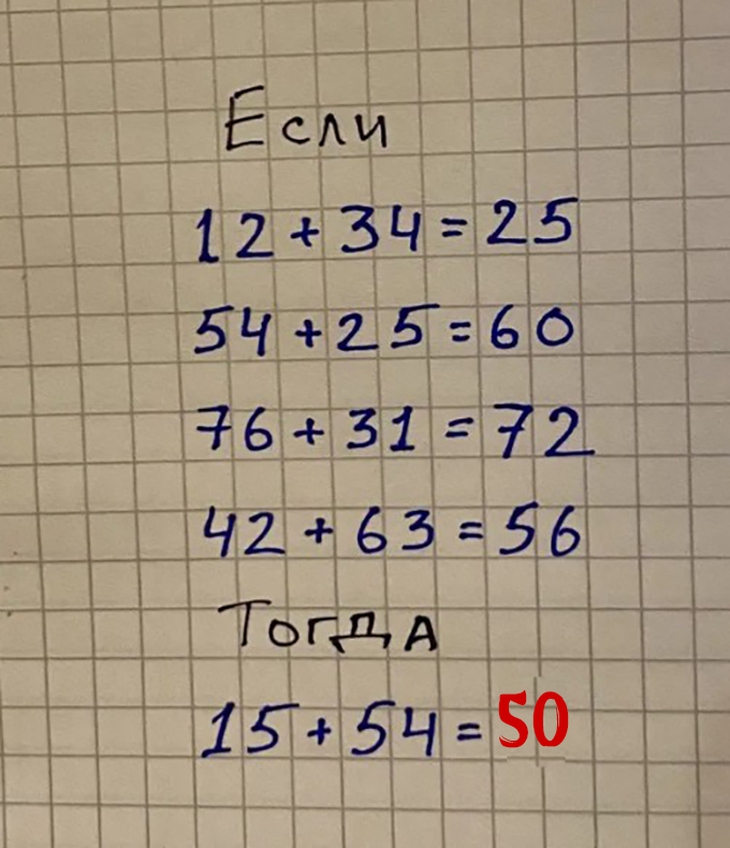 Если
12 + 34 = 25
54 + 25 = 60
76 + 31 = 72
42 + 63 = 56
Тогда
15 + 54 = 50